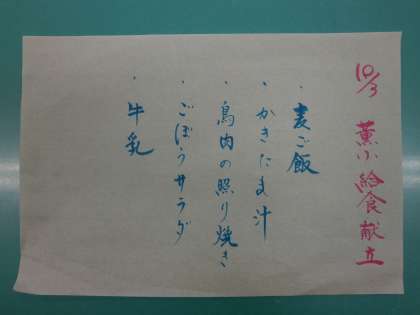 10/3 薫小 給食献立
・麦ご飯
・かきたま汁
・鳥肉の照り焼き
・ごぼうサラダ
・牛乳